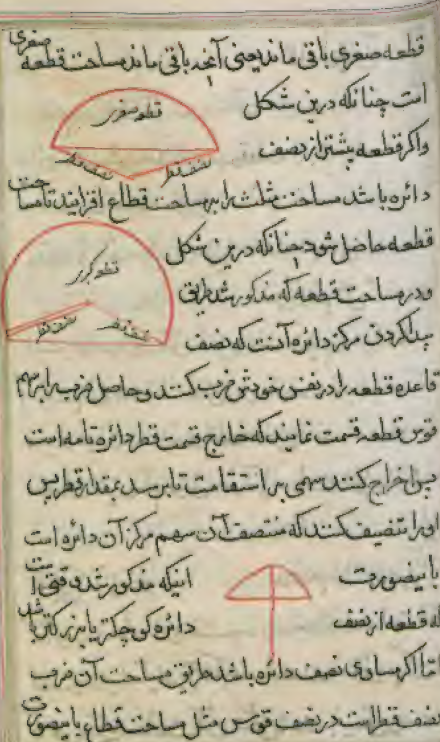 قطعه صغری باقی ماند یعنی آنچه باقی ماند مساحت قطعه صغری
است چنانکه درین شکل
قطعه صغری
واکر قطعه بیشتر از نصف
نصف قطر
نصف قطر
دائره باشد مساحت مثلث را بر مساحت قطاع افزایند تا مساحت
قطعه حاصل شود چنانکه درین شکل
قطعه کبری
ودر مساحت قطعه که مذکور شد طریق
نصف قطر
نصف قطر
پیدا کردن مرکز دائره آنست که نصف
قاعده قطعه را در نفس خودش ضرب کنند و حاصل ضرب را بر سهم
قوس قطعه قسمت نمایند که خارج قسمت قطر دائره تامه است
پس اخراج کنند سهمی بر استقامت تا برسد بمقدار قطر پس
او را تنصیف کنند که منتصف آن سهم مرکز آن دائره است
باینصورت
اینکه مذکور شد وقتی است
که قطعه از نصف
دائره کوچکتر یا بزرکتر باشد
امّا اکر مساوی نصف دائره باشد طریق مساحت آن ضرب
نصف قطر است در نصف قوس مثل مساحت قطاع باینصورت